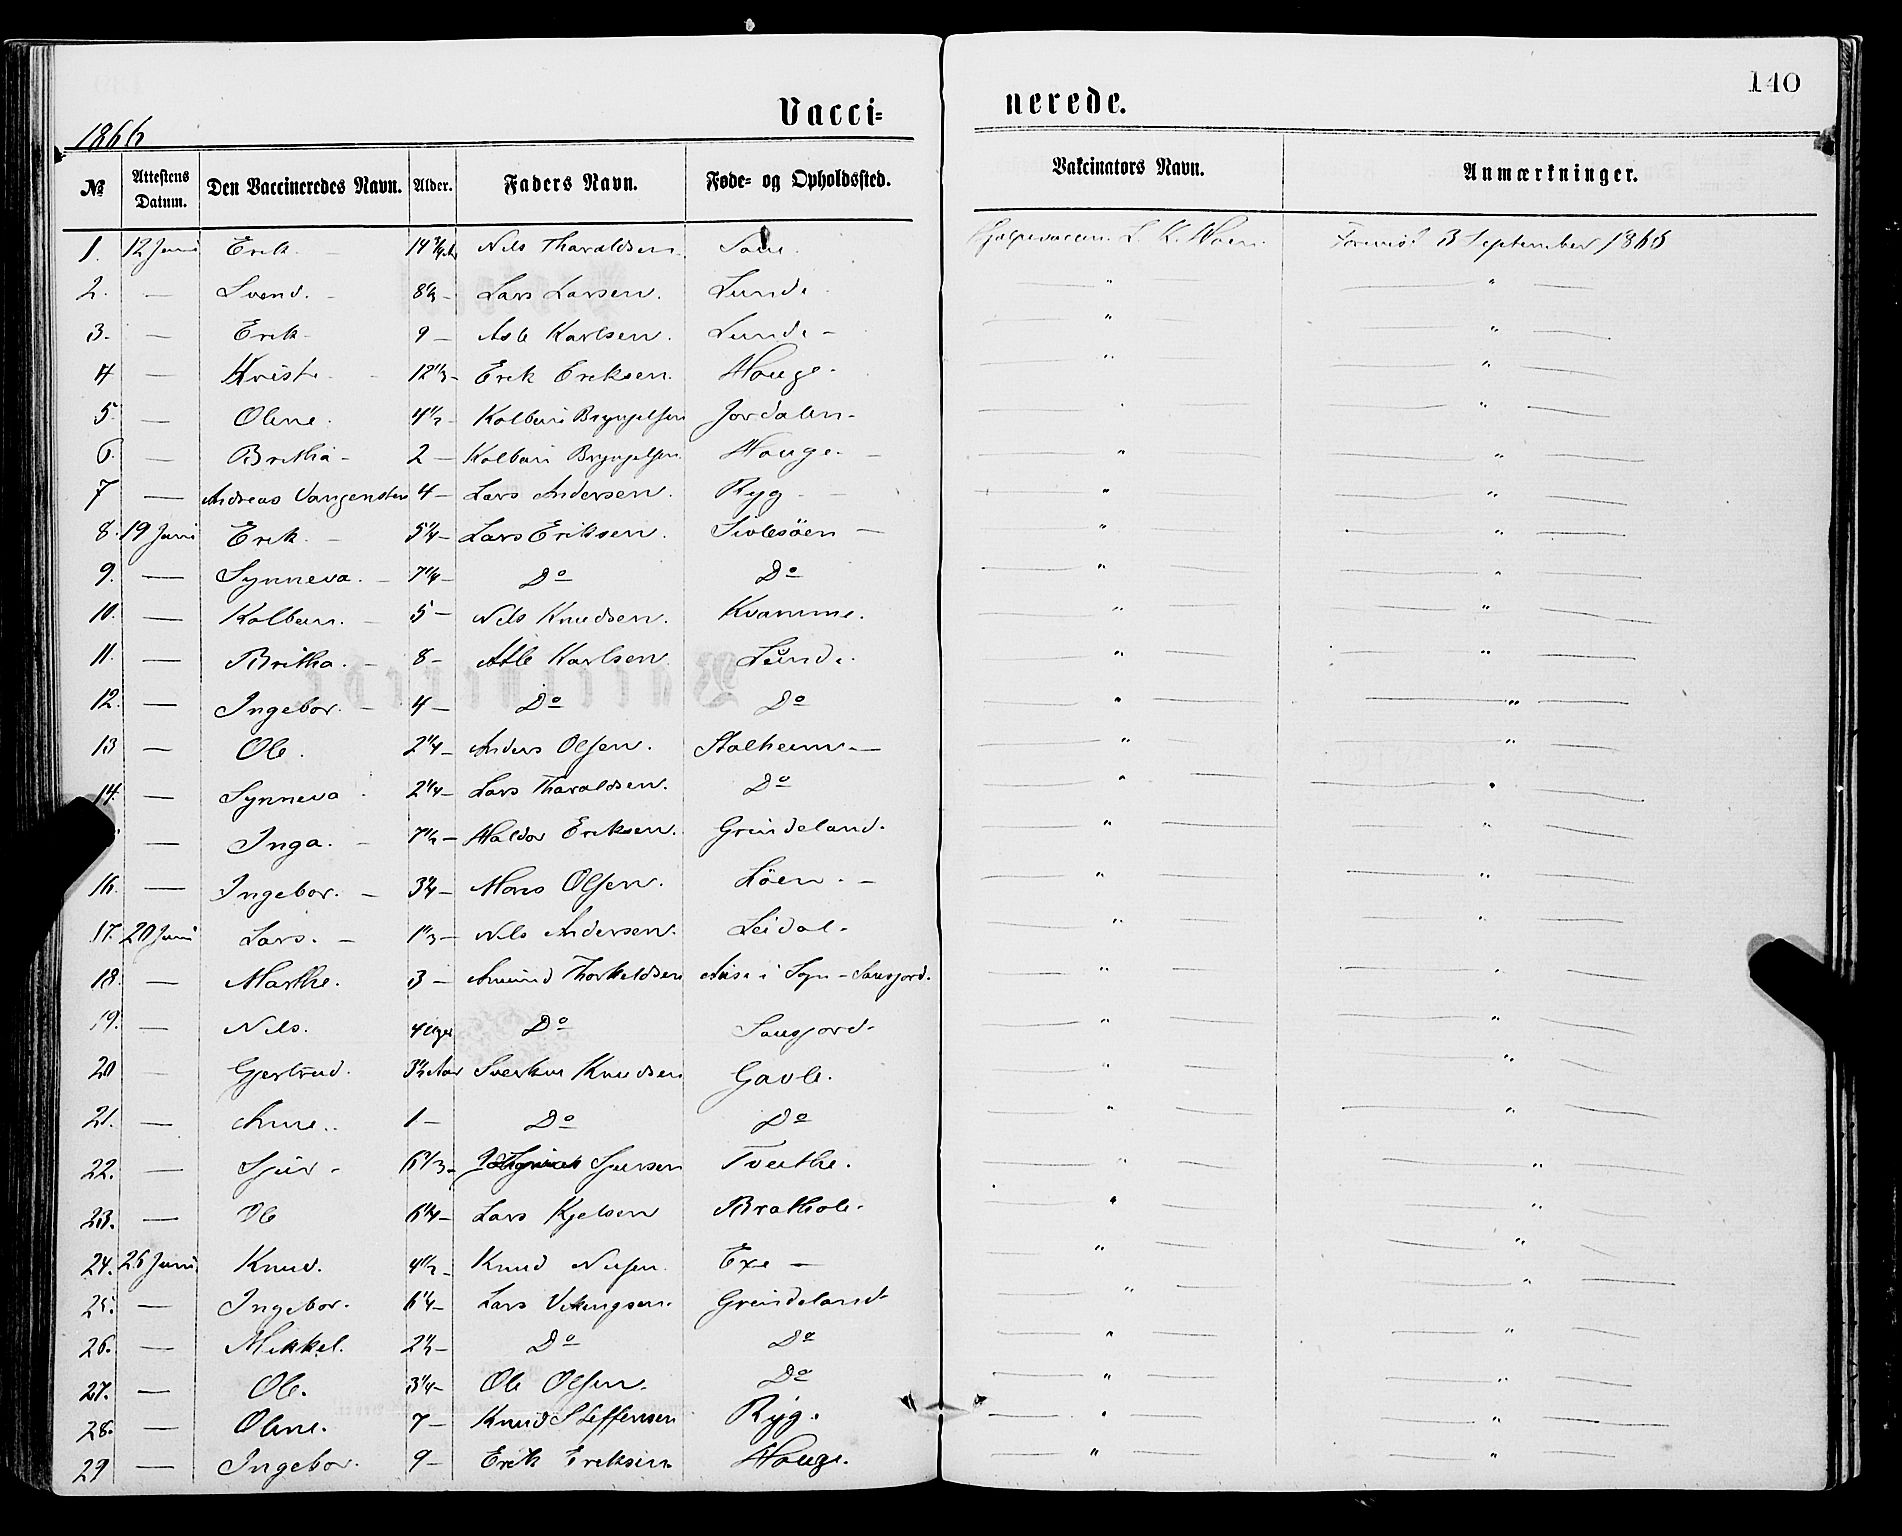 140
Vaccinerede.
1866
№ Attestens Datum. Den Vaccineredes Navn. Alder. Faders Navn. Føde- og Opholdssted. Vakcinators Navn. Anmærkninger.
1. 12 Juni Erik. Nils Tharaldsen. Hjælpevaccin. L. K. September 1866
2. — Svend. Lars Larsen. Lunde — " — — " —
3. — Erik 9 — Atle Karlsen. Lunde — — " — — " —
4 — Kristi 12 1/3 — Erik Eriksen. Houge. — " — — " —
5. — Olene. 4 1/2 — Kolbein Bryngelsen Jordalen — " — — " —
6. — Britha — 2 — Kolbein Bryngelsen Houge. — " — — " —
7 — Andreas Vangensten 4 — Lars Andersen. Ryg — " — — " —
8. 19 Juni Erik — 5 1/4 — Lars Eriksen. Sivlesöen — — " — — " —
9. — Synneva. — 7 1/4 — Do Do — " — — " —
10. — Kolbein. — 5 — Nils Knudsen. Kvamme. — " — — " —
11. — Britha. — 8 — Atle Karlsen Lunde. — " — — " —
12. — Ingebor. — 4 — Do Do — " — — " —
13 — Ole. 2 1/4 — Anders Olsen. Stalheim — — " — — " —
14. — Synneva 2 1/4 — Lars Tharaldsen. Do — " — — " —
— Inga. — 7 1/2 — Haldor Eriksen. Greindeland. — " — — " —
16. — Ingebor. — 3 1/4 — Mons Olsen. Löen. — — " — — " —
17. 20 Juni Lars. — 1 1/3 — Nils Andersen. Leidal. — " — — " —
18. — Marthe. 3 — Amund Thorkeldsen i Sogn — " — — " —
19. — Nils. 4 Uger Do — " — — " —
20 — Gjertrud. 3 1/2 Aar Sverkur Knudsen Gavle. — " — — " —
21. — Anne. 1 — Do Do — " — — " —
22. — Sjur — 6 1/3 — Sjursen Tveithe. — " — — " —
23. — Ole 6 1/4 — Lars Kjelsen Brathole. — " — — " —
24. 26 Juni Knud. 4 1/2 — Knud Nilsen Exe — — " — — " —
25. — Ingebor. 6 1/4 — Lars Vikingsen. Greindeland — " — — " —
26. — Mikkel. 2 1/2 — Do Do — " — — " —
27. — Ole. 3 1/4 — Ole Olsen. Do — " — — " —
28. — Olene. 7 — Knud Steffensen Ryg. — " — — " —
29 — Ingebor. 9 — Erik Eriksen Houge. — " — — " —